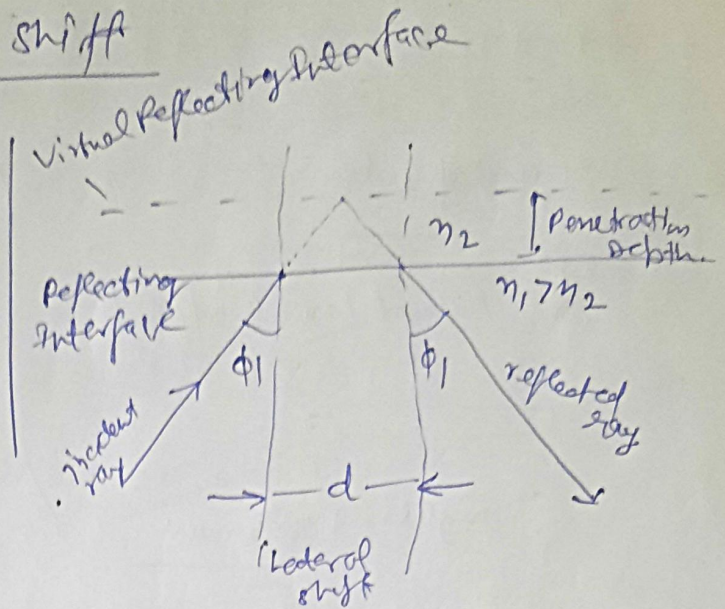 Shift
Virtual Reflecting Interface
η2
Penetration
Depth.
Reflecting
Interface
η1>η2
ϕ1
ϕ1
reflected
ray
incident
ray
d
Lateral
shift